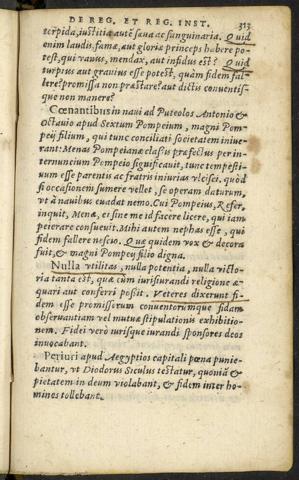 DE REG. ET REG. INST. 313
terpida, iustitia aut sæua ac sanguinaria. Quid
enim laudis, famæ, aut gloriæ princeps habere po-
test, qui vanus, mendax, aut infidus est? Quid
turpius aut grauius esse potest, quàm fidem fal-
lere? promissa non præstare? aut dictis conuentis-
que non manere?
Cœnantibus in naui ad Puteolos Antonio &
Octauio apud Sextum Pompeium, magni Pom-
peij filium, qui tunc conciliati societatem iniue-
rant: Menas Pompeianæ classis præfectus per in-
ternuncium Pompeio significauit, tunc tempesti-
uum esse parentis ac fratris iniurias vlcisci. quòd
si occasionem sumere vellet, se operam daturum,
vt à nauibus euadat nemo. Cui Pompeius, Refer,
inquit, Menæ, ei sine me id facere licere, qui iam
peierare consueuit. Mihi autem nephas esse, qui
fidem fallere nescio. Quæ quidem vox & decora
fuit, & magni Pompeij filio digna.
Nulla vtilitas, nulla potentia, nulla victo-
ria tanta est, quæ cùm iurisiurandi religione æ-
quari aut conferri possit. Veteres dixerunt fi-
dem esse promissorum conuentorúmque fidam
obseruantiam vel mutuæ stipulationis exhibitio-
nem. Fidei verò iurisque iurandi sponsores deos
inuocabant.
Periuri apud Aegyptios capitali pœna punie-
bantur, vt Diodorus Siculus testatur, quoniã &
pietatem in deum violabant, & fidem inter ho-
mines tollebant.